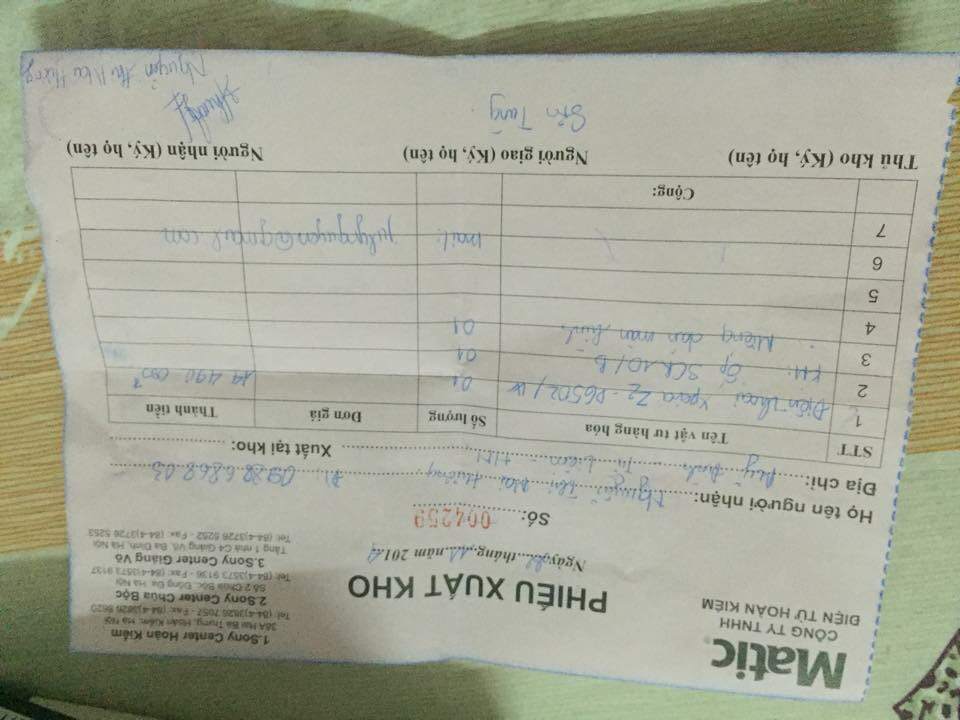 Matic
CÔNG TY TNHH
ĐIỆN TỬ HOÀN KIẾM
1.Sony Center Hoàn Kiếm
36A Hai Bà Trưng, Hoàn Kiếm, Hà Nội
Tel: (84-4)3826 7057 - Fax: (84-4)3826 6620
2.Sony Center Chùa Bộc
Số 2 Chùa Bộc, Đống Đa, Hà Nội
Tel: (84-4)3573 9136 - Fax: (84-4)3573 9137
3.Sony Center Giảng Võ
Tầng 1 nhà C4 Giảng Võ, Ba Đình, Hà Nội
Tel: (84-4)3726 5252 - Fax: (84-4)3726 5253
PHIẾU XUẤT KHO
Ngày...tháng...năm 2014
Số: 004259
Họ tên người nhận: Nguyễn Thị Mai Hương
Địa chỉ: Mỹ Đình, Từ Liêm - HN Xuất tại kho:
STT Tên vật tư hàng hóa Số lượng Đơn giá Thành tiền
1 Điện thoại Xperia Z2 - D6502/ 01 490 000đ
2 KM: Ốp SCR10/B 01
3 Miếng dán màn hình 01
4
5
6 mail: julynguyen@gmail.com
7
Cộng:
Thủ kho (Ký, họ tên) Người giao (Ký, họ tên) Người nhận (Ký, họ tên)
Tùng
Nguyễn Thị Mai Hương